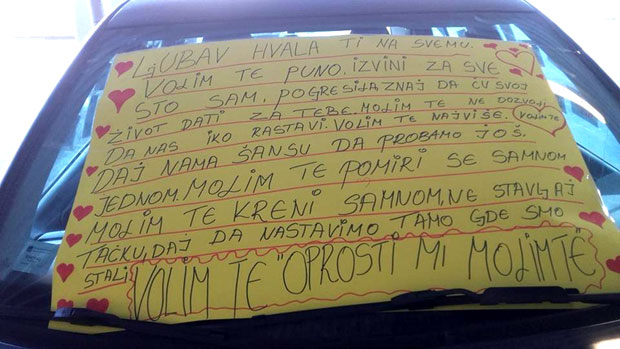 LJUBAV HVALA TI NA SVEMU.
VOLIM TE PUNO. IZVINI ZA SVE
ŠTO SAM, POGREŠILA ZNAJ DA ĆU SVOJ
ŽIVOT DATI ZA TEBE. MOLIM TE NE DOZVOLI
DA NAS IKO RASTAVI. VOLIM TE NAJVIŠE. VOLIM TE
DAJ NAMA ŠANSU DA PROBAMO JOŠ.
JEDNOM. MOLIM TE POMIRI SE SAMNOM
MOLIM TE KRENI SAMNOM, NE STAVLJAJ
TAČKU, DAJ DA NASTAVIMO TAMO GDE SMO
STALI
VOLIM TE "OPROSTI MI MOLIM TE